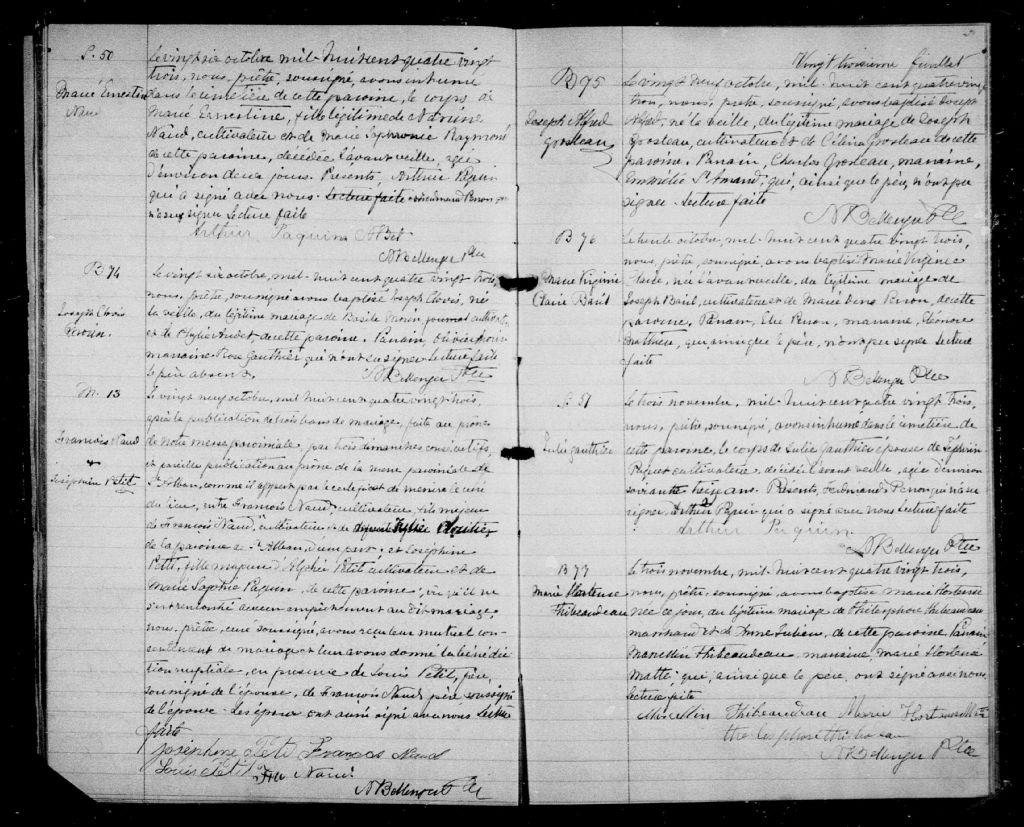 S. 50
Marie Ernestine
Naud
Le vingt six octobre mil-huit cent quatre vingt
trois, nous, prêtre, soussigné, avons inhumé
dans le cimetière de cette paroisse, le corps de
Marie Ernestine, fille légitime de
Naud, cultivateur et de Marie Sophronie Raymond
de cette paroisse, décédée l'avant veille, agée
d'environ deux jours. Présents, Arthur Paquin
qui a signé avec nous. Lecture faite Perron qui
n'a su signer Lecture faite
Arthur Paquin
N Bellenger Ptre
B 74
Joseph Clovis
Morin.
Le vingt six octobre, mil-huit cent quatre vingt trois,
nous, prêtre, soussigné avons baptisé Joseph Clovis, né
la veille, du légitime mariage de Basile Morin, journal cultivat
et de de cette paroisse. Parrain, Olivier Morin
marraine Rose Gauthier, qui n'ont su signer Lecture faite
le père absent.
N Bellenger Ptre
M. 13
François Naud
&
Joséphine Petit
Le vingt neuf octobre, mil huit cent quatre vingt trois,
après la publication de trois bans de mariage, faite au prône
de notre messe paroissiale par trois dimanches consécutifs,
et pareille publication au prône de la messe paroissiale de
St Alban, comme il appert par le certificat de messire le curé
du lieu, entre François Naud, cultivateur, fils majeur
de François Naud, cultivateur et de Cloutier
de la paroisse de St Alban, d'une part; et Joséphine
Petit, fille majeure d'Alphée Petit cultivateur et de
Marie Sophie Paquin, de cette paroisse, vu qu'il ne
s'est rencontré aucun empêchement au dit mariage,
nous, prêtre, curé soussigné, avons reçu leur mutuel con-
sentement de mariage et leur avons donné la bénédic
tion nuptiale, en présence de Louis Petit, frère
soussigné de l'épouse, de François Naud, père soussigné
de l'époux. Les époux ont aussi signé avec nous Lecture
faite
Joséphine Petit François Naud
Louis Petit Naud
N Bellenger Ptre
Vingt troisième feuillet
B 75
Joseph Alfred
Grosleau
Le vingt neuf octobre, mil-huit cent quatre vingt
trois, nous, prêtre, soussigné, avons baptisé Joseph
Alfred, né la veille, du légitime mariage de Joseph
Grosleau, cultivateur et de Célina Grosleau de cette
paroisse, Parrain, Charles Grosleau, marraine,
St Amand, qui, ainsi que le père, n'ont pu
signer. Lecture faite
N Bellenger Ptre
B 76
Marie Virginie
Claire Baril
Le trente octobre, mil-huit cent quatre vingt trois,
nous, prêtre, soussigné, avons baptisé Marie Virginie
Claire, née l'avant veille, du légitime mariage de
Joseph Baril, cultivateur et de Marie Perron, de cette
paroisse, Parrain, Elie Perron, marraine, Eléonore
Matthieu, qui, ainsi que le père, n'ont pu signer Lecture
faite
N Bellenger Ptre
S. 51
Julie Gauthier
Le trois novembre, mil-huit cent quatre vingt trois,
nous, prêtre, soussigné, avons inhumé dans le cimetière de
cette paroisse, le corps de Julie Gauthier épouse de Zéphirin
cultivateur, décédée l'avant veille, agée d'environ
soixante treize ans. Présents, Ferdinand Perron qui n'a su
signer, Arthur Paquin qui a signé avec nous Lecture faite
Arthur Paquin
N Bellenger Ptre
B 77
Marie Hortense
Thibeaudeau
Le trois novembre, mil-huit cent quatre vingt trois,
nous, prêtre, soussigné, avons baptisé Marie Hortense
née ce jour, du légitime mariage de Thélesphore Thibeaudeau
marchand et de Anne Julien, de cette paroisse Parrain
Marcellin Thibeaudeau, marraine, Marie Hortense
Matte, qui, ainsi que le père, ont signé avec nous,
Lecture faite
Marcellin Thibeaudeau Marie Hortense Matte
Thelesphore Thibodeau
N Bellenger Ptre